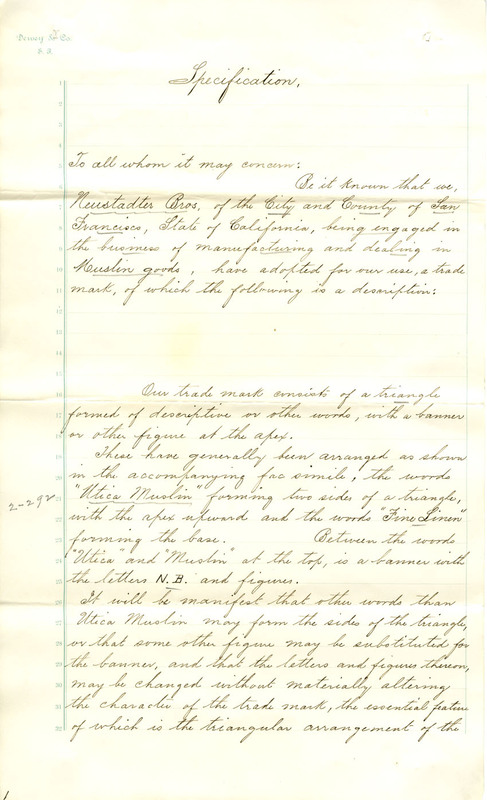 Dewey & Co.
S. F.
Specification.
To all whom it may concern:
Be it known that we,
Neustadter Bros, of the City and County of San
Francisco, State of California, being engaged in
the business of manufacturing and dealing in
Muslin goods, have adopted for our use, a trade
mark, of which the following is a description:
Our trade mark consists of a triangle
formed of descriptive or other words, with a banner
or other figure at the apex.
These have generally been arranged as shown
in the accompanying fac simile, the words
"Utica Muslin" forming two sides of a triangle,
2-292
with the apex upward and the words "Fine Linen"
forming the base. Between the words
"Utica" and "Muslin" at the top, is a banner with
the letters N.B. and figures.
It will be manifest that other words than
Utica Muslin may form the sides of the triangle,
or that some other figure may be substituted for
the banner, and that the letters and figures thereon,
may be changed without materially altering
the character of the trade mark, the essential feature
of which is the triangular arrangement of the